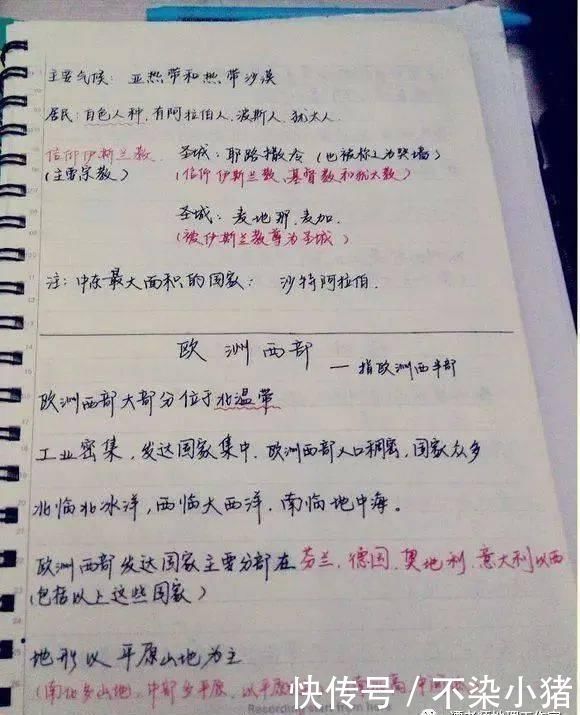 主要气候：亚热带和热带沙漠
居民：白色人种，有阿拉伯人、波斯人、犹太人.
信仰伊斯兰教 圣城：耶路撒冷（也被称之为哭墙）
（主要宗教） （信仰伊斯兰教、基督教和犹太教）
圣城：麦地那、麦加.
（被伊斯兰教尊为圣城）
注：中东最大面积的国家： 沙特阿拉伯.
欧洲西部
— 指欧洲西半部
欧洲西部大部分位于北温带
工业密集，发达国家集中，欧洲西部人口稠密，国家众多
北临北冰洋，西临大西洋，南临地中海。
欧洲西部发达国家主要分部在芬兰、德国、奥地利、意大利以西
（包括以上这些国家）
地形以平原山地为主
（南北多山地，中部多平原，以平原
快传号／不染小猪